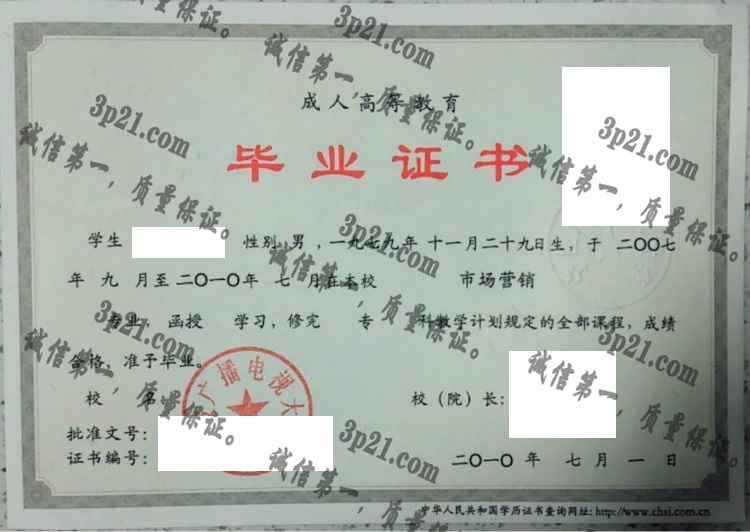 成人高等教育
毕业证书
学生 性别 男 ,一九七九年 十一月二十九日生,于 二〇〇七
年 九 月至二〇一〇年 七 月在本校 市场营销
专业 函授 学习,修完 专 科教学计划规定的全部课程,成绩
合格,准予毕业。
校 名:
校(院)长:
广播电视大
批准文号:
证书编号:
二〇一〇 年 七 月 一 日
中华人民共和国学历证书查询网址: http://www.chsi.com.cn
3p21.com
诚信第一,质量保证。
3p21.com
诚信第一,质量保证。
3p21.com
诚信第一,质量保证。
3p21.com
诚信第一,质量保证。
3p21.com
诚信第一,质量保证。
3p21.com
诚信第一,质量保证。
3p21.com
诚信第一,质量保证。
3p21.com
诚信第一,质量保证。